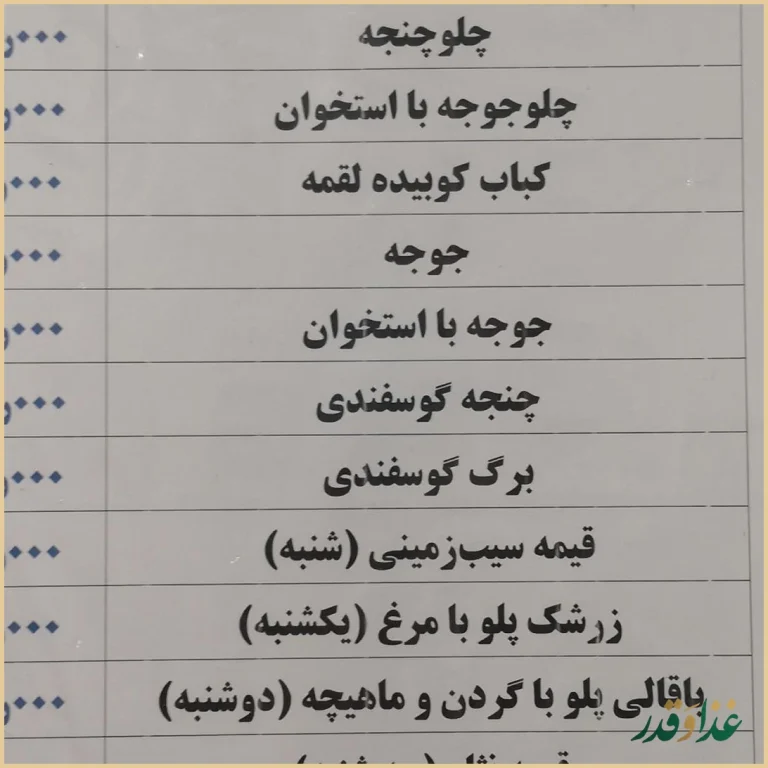 چلوچنجه ۰۰۰ر
چلوجوجه با استخوان ۰۰۰ر
کباب کوبیده لقمه ۰۰۰ر
جوجه ۰۰۰ر
جوجه با استخوان ۰۰۰ر
چنجه گوسفندی ۰۰۰ر
برگ گوسفندی ۰۰۰ر
قیمه سیب‌زمینی (شنبه) ۰۰۰ر
زرشک پلو با مرغ (یکشنبه) ۰۰۰
باقالی پلو با گردن و ماهیچه (دوشنبه) ۰۰۰ر
غذا و قدر